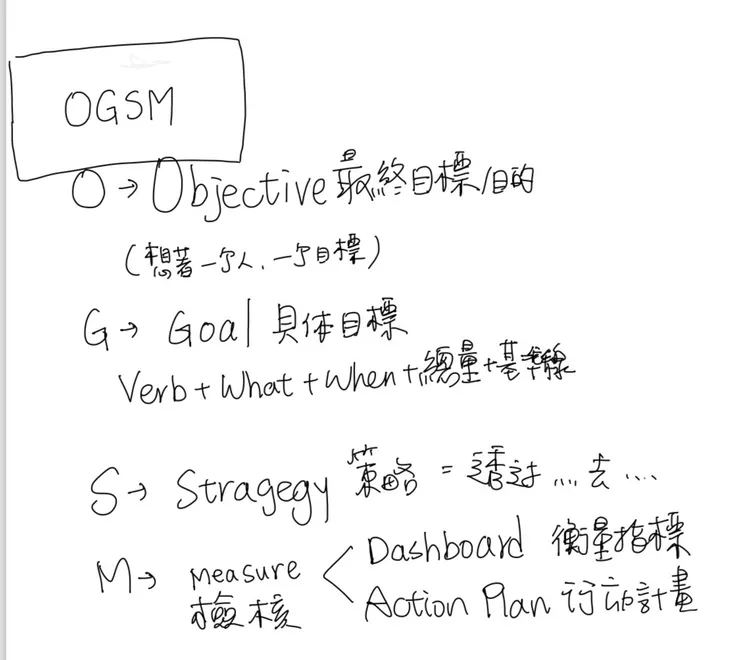 OGSM
O → Objective 最終目標/目的
(想著一个人、一个目標)
G → Goal 具体目標
Verb + What + When + 總量 + 基準線
S → Stragegy 策略 = 透过 .... 去 ....
M → Measure 檢核 < Dashboard 衡量指標
Action Plan 行动計畫